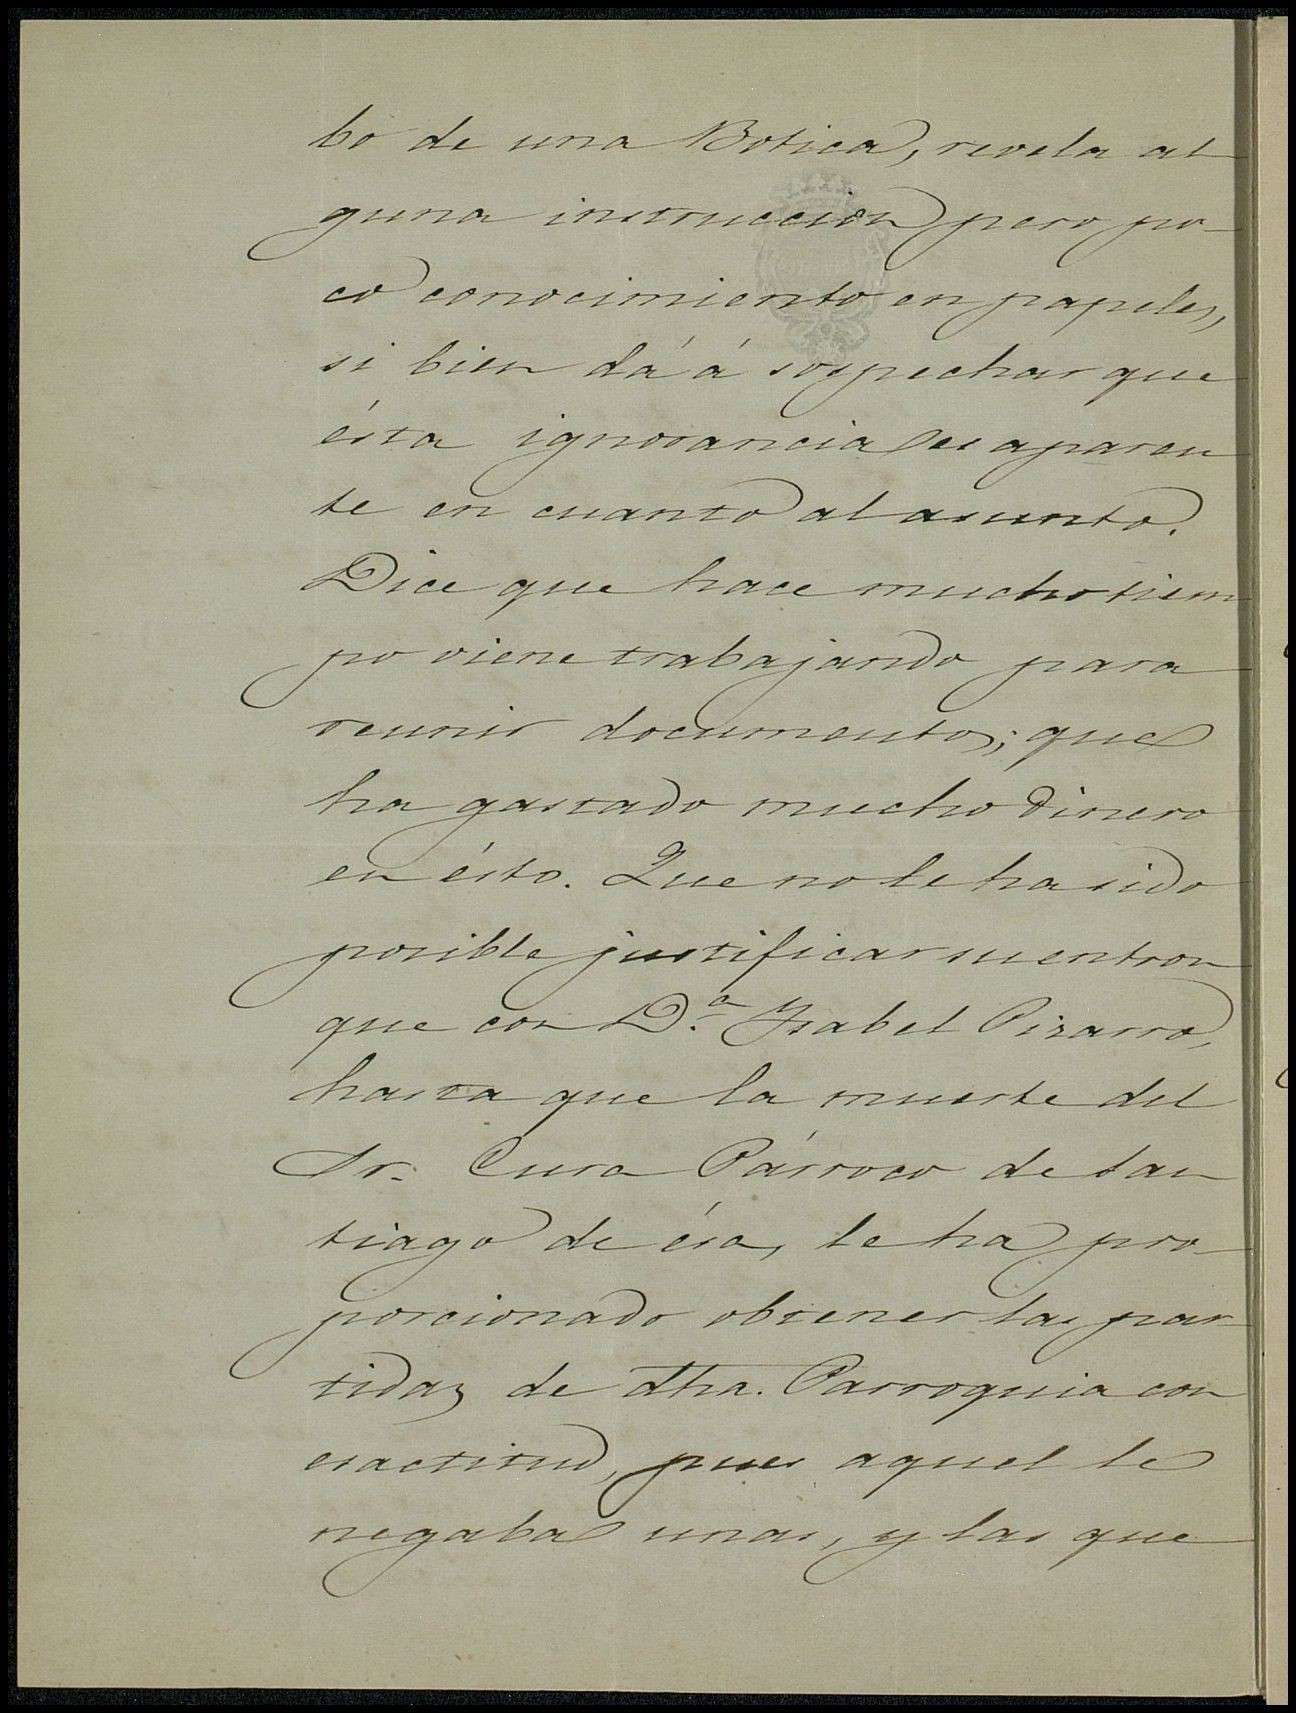 bo de una Botica, revela al
guna instruccion pero po-
co conocimiento en papeles,
si bien dá á sospechar que
ésta ignorancia es aparen
te en cuanto al asunto.
Dice que hace mucho tiem
po viene trabajando para
reunir documentos; que
ha gastado mucho dinero
en ésto. Que no le ha sido
posible justificar su entron
que con D.ª Ysabel Pizarro,
hasta que la muerte del
Sr. Cura Párroco de San
tiago de ésa, le ha pro-
porcionado obtener las par
tidas de dha. Parroquia con
esactitud, pues aquel le
negaba unas, y las que